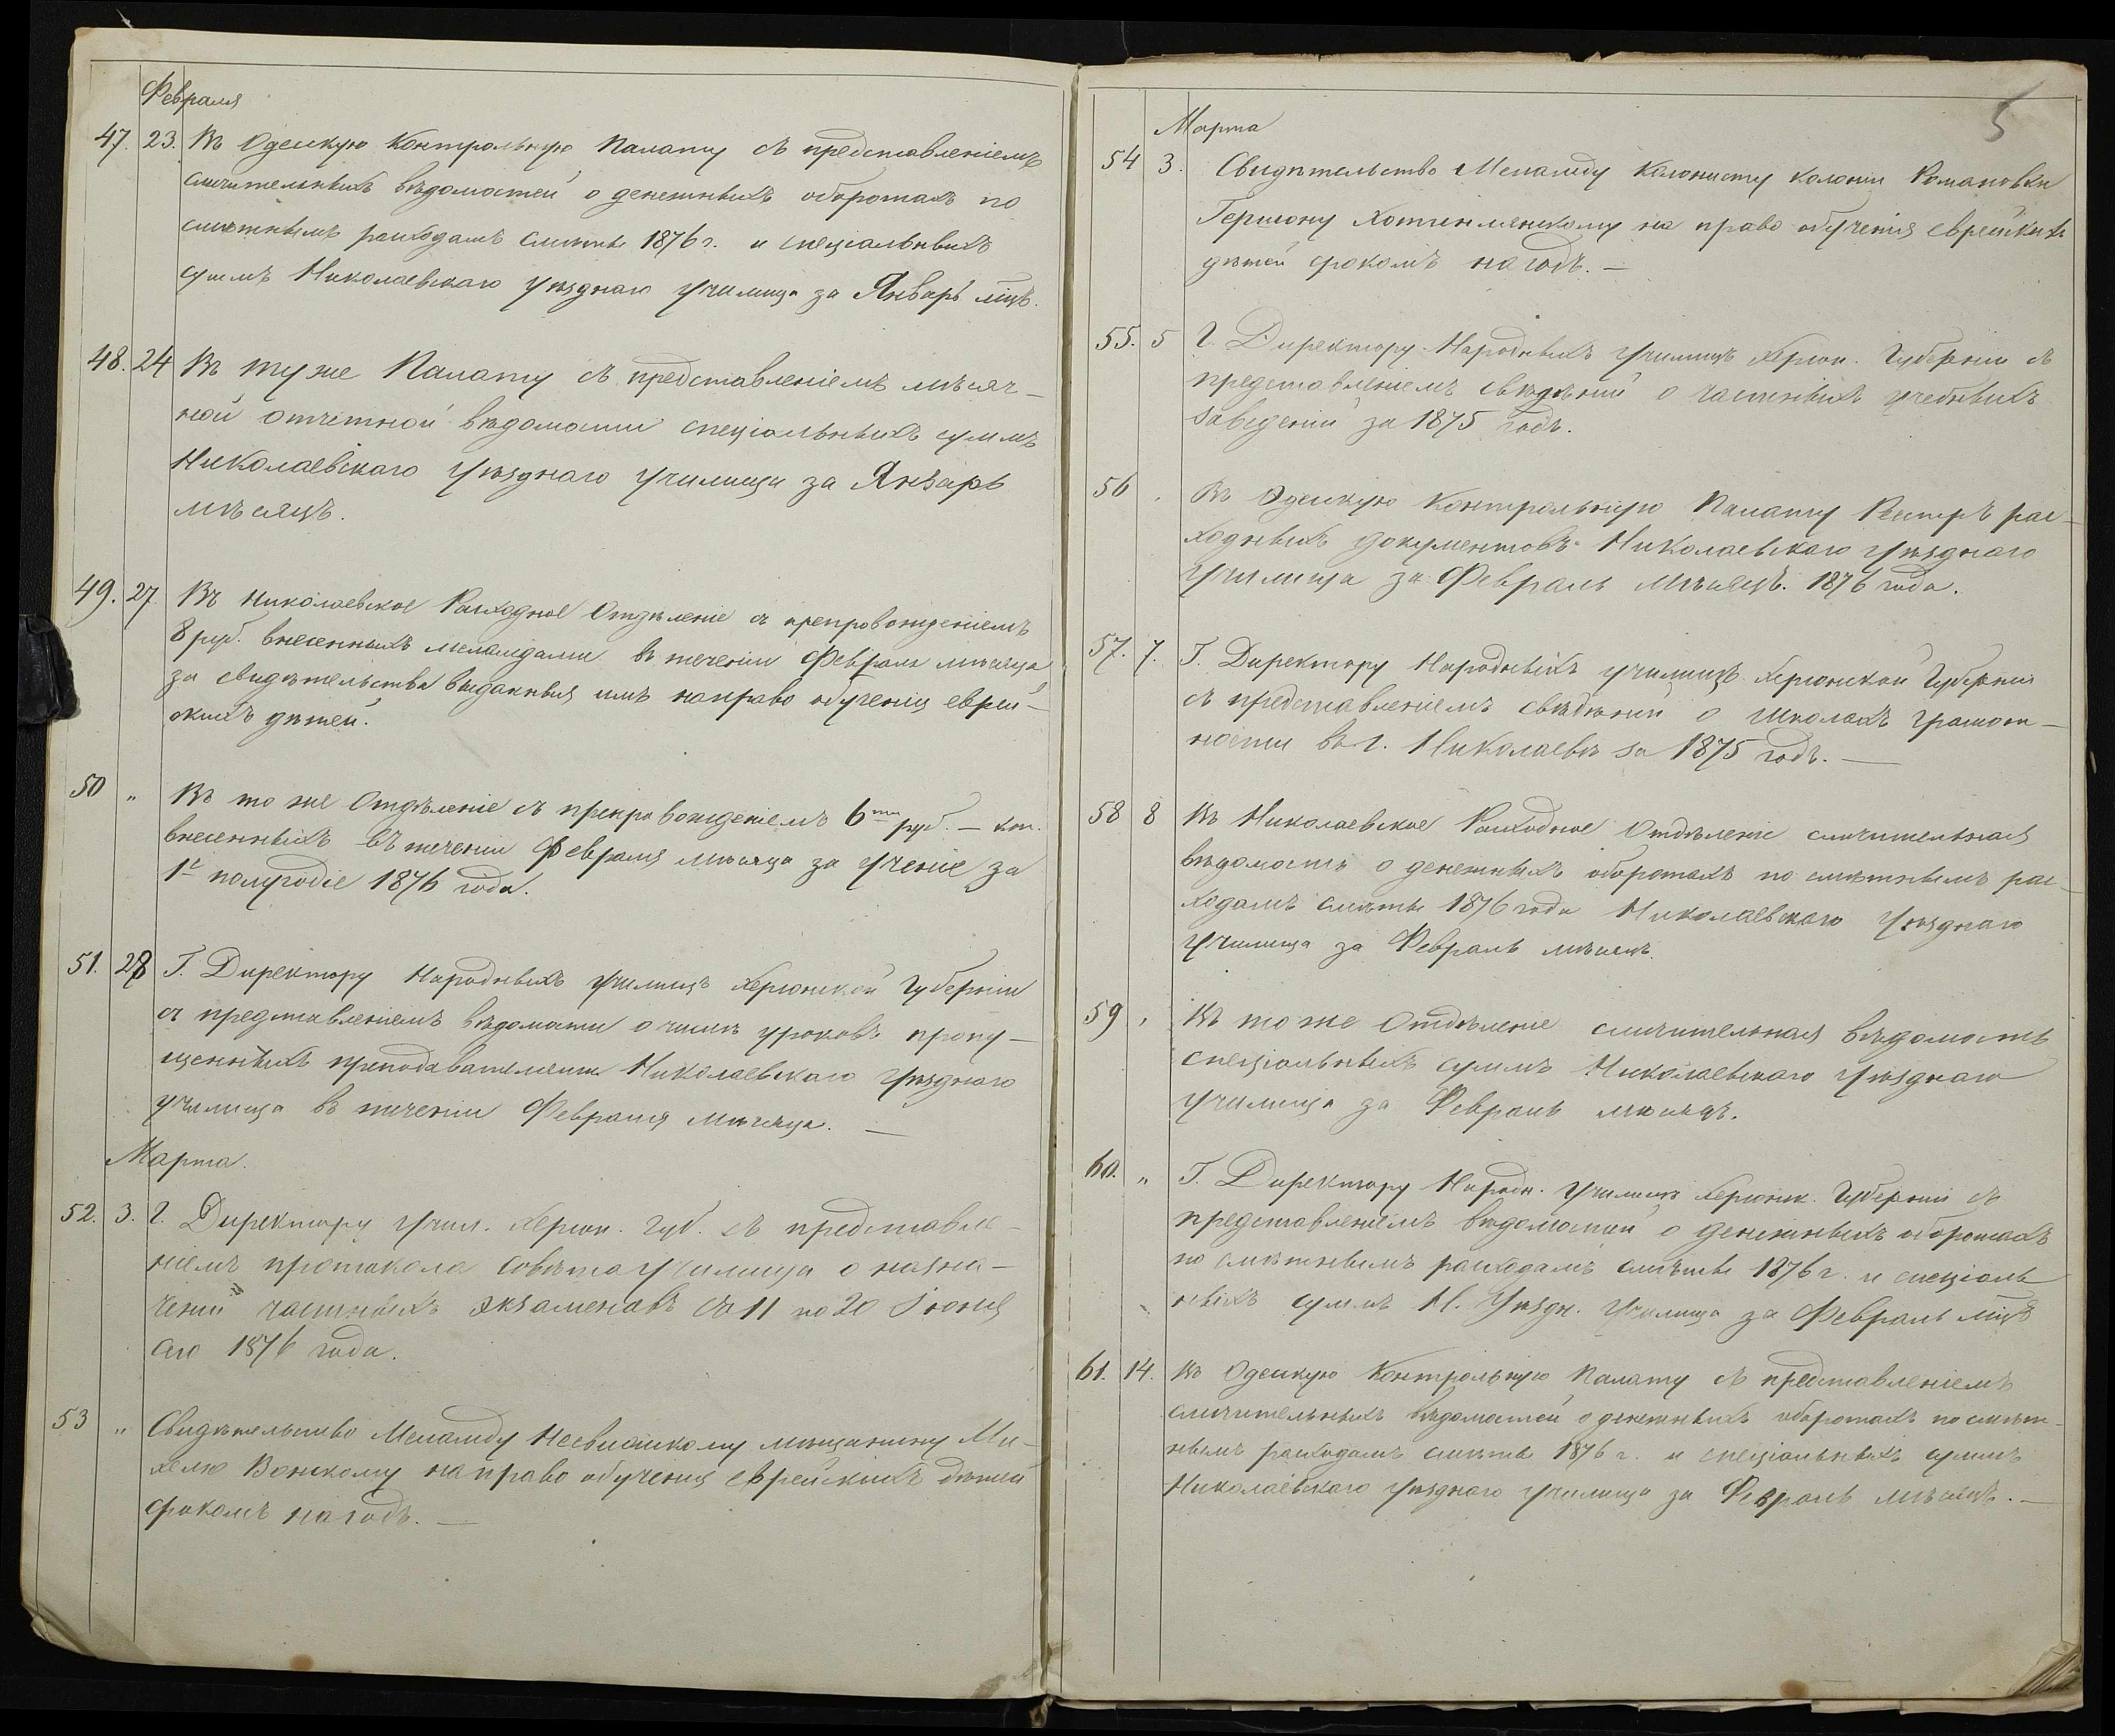 Февраля
47. 23. Въ Одесскую Контрольную Палату съ представленіемъ
сличительныхъ вѣдомостей о денежныхъ оборотахъ по
смѣтнымъ расходамъ смѣты 1876 г. и спеціальныхъ
суммъ Николаевскаго уѣзднаго училища за Январь мцъ.
48. 24 Въ ту же Палату съ представленіемъ мѣсяч-
ной отчетной вѣдомости спеціальныхъ суммъ
Николаевскаго уѣзднаго училища за Январь
мѣсяцъ.
49. 27 Въ Николаевское Расходное Отдѣленіе съ препровожденіемъ
8 руб. внесенныхъ меламдами въ теченіи Февраля мѣсяца
за свидѣтельства выданныя имъ на право обученія еврей-
скихъ дѣтей.
50 " Въ то же Отдѣленіе съ препровожденіемъ 6ти руб. — коп.
внесенныхъ въ теченіи Февраля мѣсяца за ученіе за
1е полугодіе 1876 года.
51. 28 Г. Директору Народныхъ училищъ Херсонской Губерніи
съ представленіемъ вѣдомости о числѣ уроковъ пропу-
щенныхъ преподавателями Николаевскаго Уѣзднаго
училища въ теченіи Февраля мѣсяца. —
Марта.
52. 3. Г. Директору Учил. Херсон. Губ. съ представле-
ніемъ протокола совѣта училища о назна-
ченіи частныхъ экзаменовъ съ 11 по 20 Іюня
сего 1876 года.
53 " Свидѣтельство Меламду Несвижскому мѣщанину Ми-
хелю Вонскому на право обученія еврейскихъ дѣтей
срокомъ на годъ. —
5
Марта
54 3. Свидѣтельство Меламду колонисту колоніи Романовки
Гершону на право обученія еврейскихъ
дѣтей срокомъ на годъ. —
55. 5 Г. Директору Народныхъ училищъ Херсон. Губерніи съ
представленіемъ свѣдѣній о частныхъ учебныхъ
заведеній за 1875 годъ.
56 " Въ Одесскую Контрольную Палату Реестръ рас-
ходныхъ документовъ Николаевскаго уѣзднаго
училища за Февраль мѣсяцъ. 1876 года.
57. 7. Г. Директору Народныхъ училищъ Херсонской Губерніи
съ представленіемъ свѣдѣній о школахъ грамот-
ности въ г. Николаевѣ за 1875 годъ. —
58 8 Въ Николаевское Расходное Отдѣленіе сличительная
вѣдомость о денежныхъ оборотахъ по смѣтнымъ рас-
ходамъ смѣты 1876 года Николаевскаго уѣзднаго
училища за Февраль мѣсяцъ.
59 " Въ то же Отдѣленіе сличительная вѣдомость
спеціальныхъ суммъ Николаевскаго уѣзднаго
училища за Февраль мѣсяцъ.
60. " Г. Директору Народн. училищъ Херсонск. Губерніи съ
представленіемъ вѣдомостей о денежныхъ оборотахъ
по смѣтнымъ расходамъ смѣты 1876 г. и спеціаль
ныхъ суммъ Н. Уѣздн. Училища за Февраль мцъ
61. 14. Въ Одесскую Контрольную Палату съ представленіемъ
сличительныхъ вѣдомостей о денежныхъ оборотахъ по смѣт-
нымъ расходамъ смѣты 1876 г. и спеціальныхъ суммъ
Николаевскаго уѣзднаго училища за Февраль мѣсяцъ. —